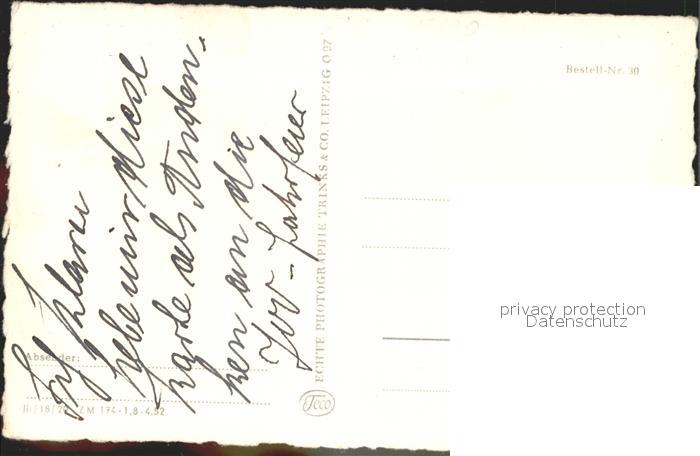 Ich klarer
hebe mir diese
Karte als Anden-
ken an die
700-Jahrfeier
Absender:
III/18/29 ZM 174-1,8-4,52
Teco
ECHTE PHOTOGRAPHIE TRINKS & CO. LEIPZIG O 27
Bestell-Nr. 30
privacy protection
Datenschutz